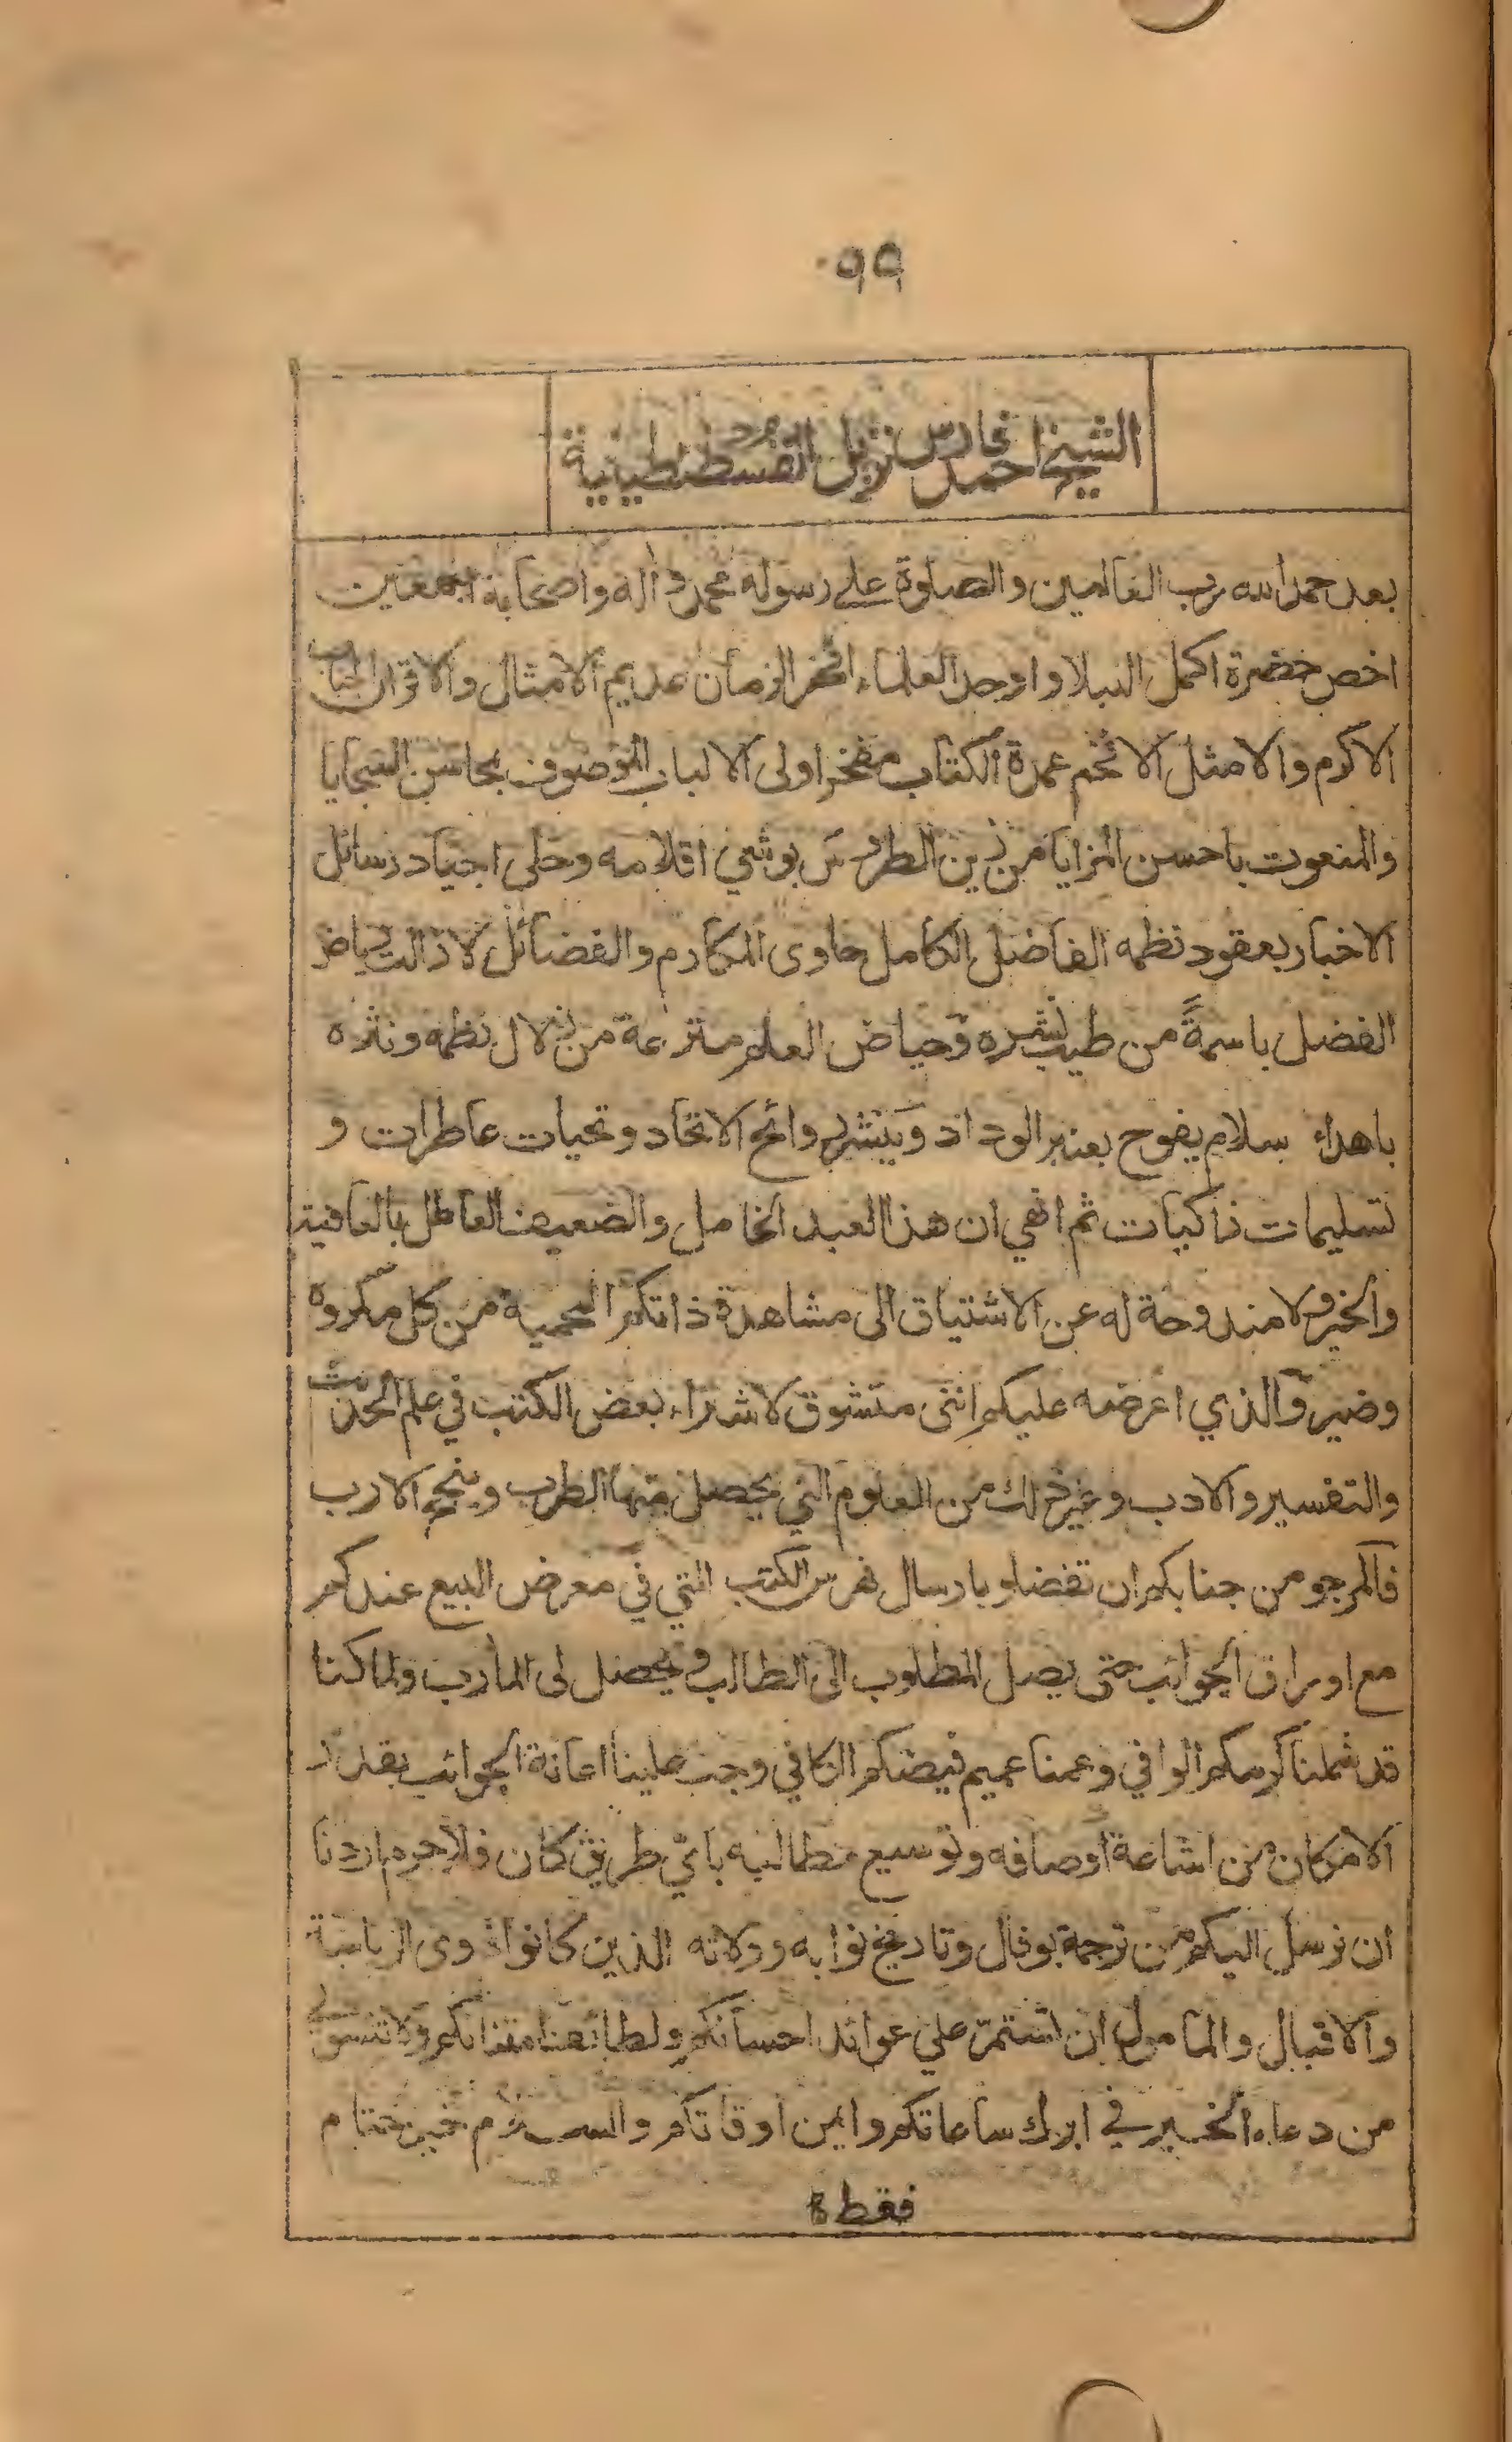 ٩٩
الشيخ احمد فارس نزيل القسطنطينية
بعد حمد الله رب العالمين والصلوة على رسوله محمد و اله واصحابه اجمعين
اخص حضرة اكمل النبلا واوحد العلماء افخر الزمان عديم الامثال والاقران الجناب
الاكرم والامثل الافخم عمدة الكتاب مفخر اولى الالباب الموصوف بمحاسن السجايا
والمنعوت باحسن المزايا من زين الطروس بوشي اقلامه وحلى اجياد رسائل
الاخبار بعقود نظمه الفاضل الكامل حاوى المكارم والفضائل لا زالت رياض
الفضل باسمةً من طيب نشره وحياض العلم مترعة من زلال نظمه ونثره
باهداء سلام يفوح بعنبر الوداد وينشر روائح الاتحاد وتحيات عاطرات و
تسليمات زاكيات ثم انهي ان هذا العبد الخامل والضعيف العاطل بالعافية
والخير ولا مندوحة له عن الاشتياق الى مشاهدة ذاتكم المحمية من كل مكروه
وضير والذي اعرضه عليكم انني متشوق لاشراء بعض الكتب في علم الحديث
والتفسير والادب وغير ذلك من العلوم التي يحصل منها الطرب وينجح الارب
فالمرجو من جنابكم ان تفضلو بارسال فهرس الكتب التي في معرض البيع عندكم
مع اوراق الجوائب حتى يصل المطلوب الى الطالب و يحصل لى المأرب ولما كنا
قد شملنا كرمكم الوافي وعمنا عميم فيضكم الكافي وجب علينا اعانة الجوائب بقدر
الامكان من اشاعة اوصافه وتوسيع مطالبه باي طريق كان فلا جرم اردنا
ان نرسل اليكم من ترجمة بوفال وتاريخ نوابه وولاته الذين كانوا ذوى الرياسة
والاقبال والمامول ان استمر علي عوائد احسانكم ولطائف امتنانكم ولا تنسوني
من دعاء الخير في ابرك ساعاتكم وايمن اوقاتكم والسلام خير ختام
فقط